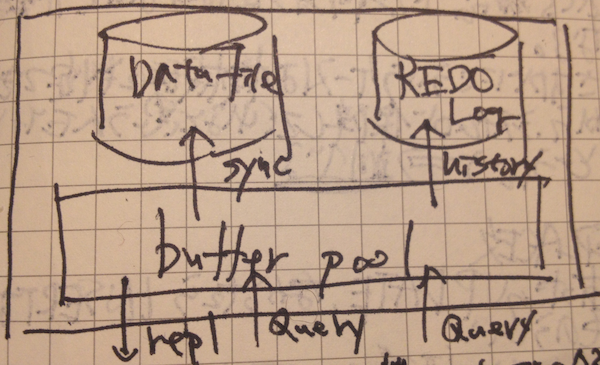 Data file
REDO
Log
sync
history
buffer pool
repl
Query
Query